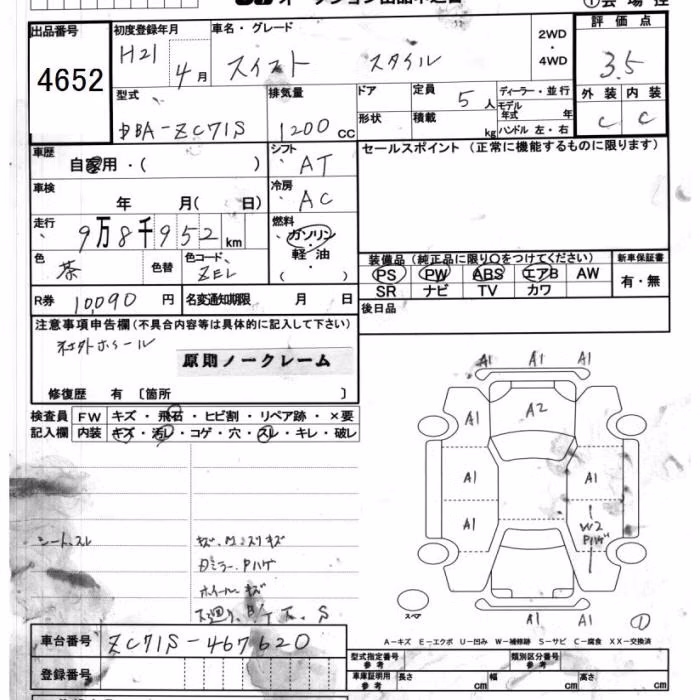 出品番号
4652
初度登録年月
H21
4月
車名・グレード
スイフト スタイル
2WD
・
4WD
評価点
3.5
外装 内装
C C
型式
DBA-ZC71S
排気量
1200 CC
ドア
形状
定員
5 人
積載
kg
ディーラー・並行
モデル
年式 年
ハンドル 左・右
車歴
自家用・( )
シフト
AT
セールスポイント (正常に機能するものに限ります)
車検
年 月( 日)
冷房
AC
走行
9万8千952 km
燃料
ガソリン
軽油
( )
色
茶
色替
色コード
ZEL
装備品 (純正品に限り○をつけてください)
PS PW ABS エアB AW
SR ナビ TV カワ
新車保証書
有・無
R券 10,090 円
名変通知期限 月 日
後日品
注意事項申告欄(不具合内容等は具体的に記入して下さい)
社外ホイール
原則ノークレーム
修復歴 有 〔箇所 〕
検査員
記入欄
FW キズ・飛石・ヒビ割・リペア跡・×要
内装 キズ・汚レ・コゲ・穴・スレ・キレ・破レ
シートスレ
ホイールキズ
A1 A1 A1
A1 A2
A1 A1
A1
W2
Pハゲ
A1 A1
スペア
①
A-キズ E-エクボ U-凹み W-補修跡 S-サビ C-腐食 XX-交換済
車台番号
ZC71S-467620
登録番号
型式指定番号
参考
類別区分番号
参考
車庫証明用
参考
長さ cm
幅 cm
高さ cm